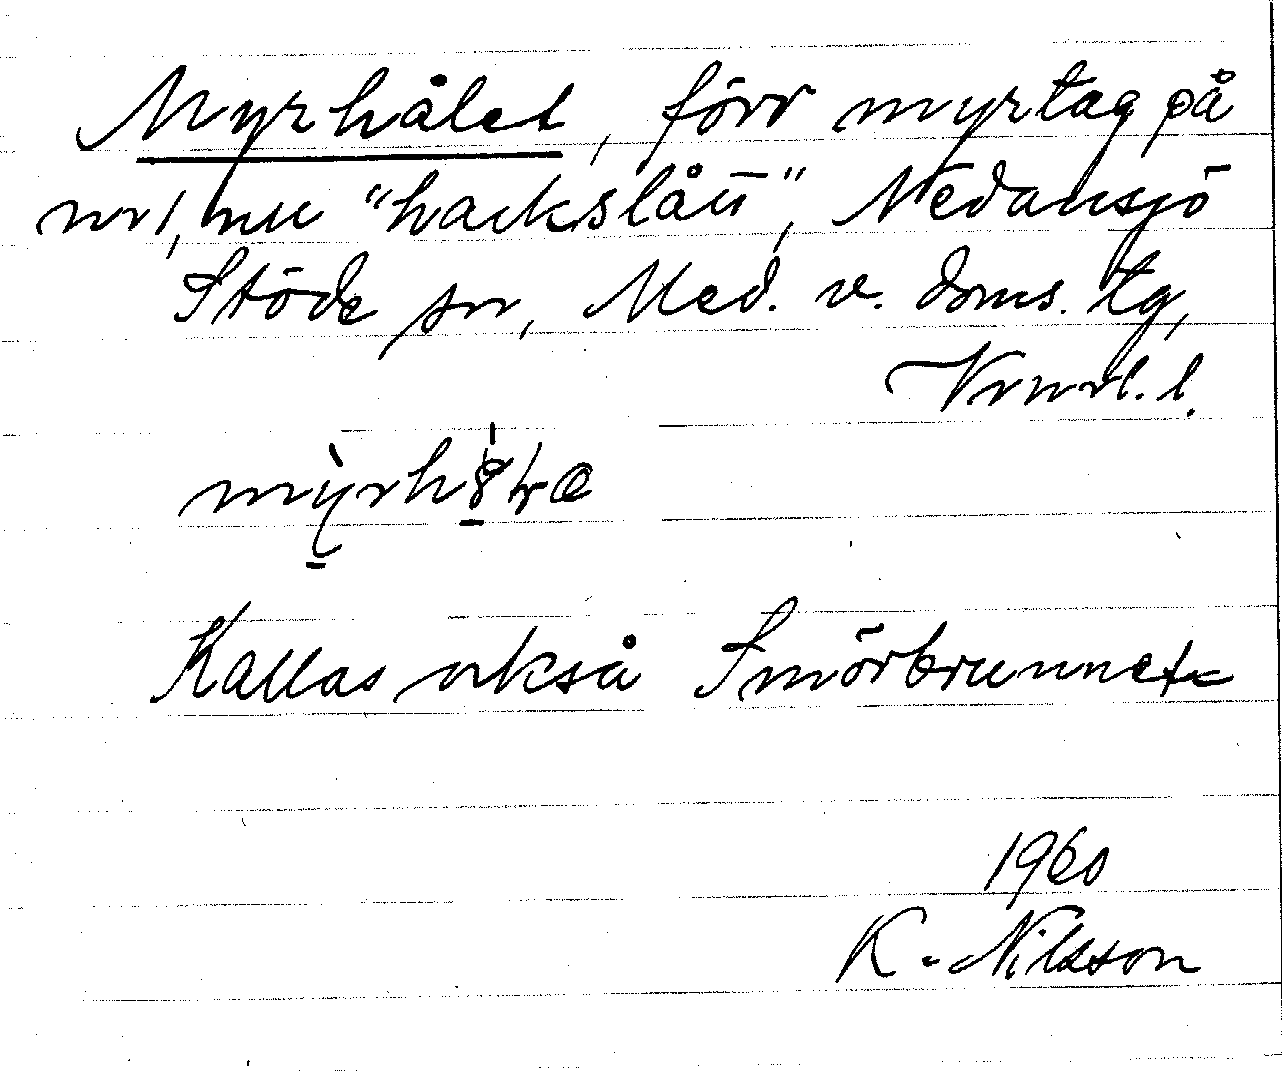 Myrhålet, förr myrtag på
nr 1, nu "hackslått", Nedansjö
Stöde sn, Med. v. doms. tg,
Vrnrl. l.
Kallas också Smörbrunnet
1960
K. Nilsson